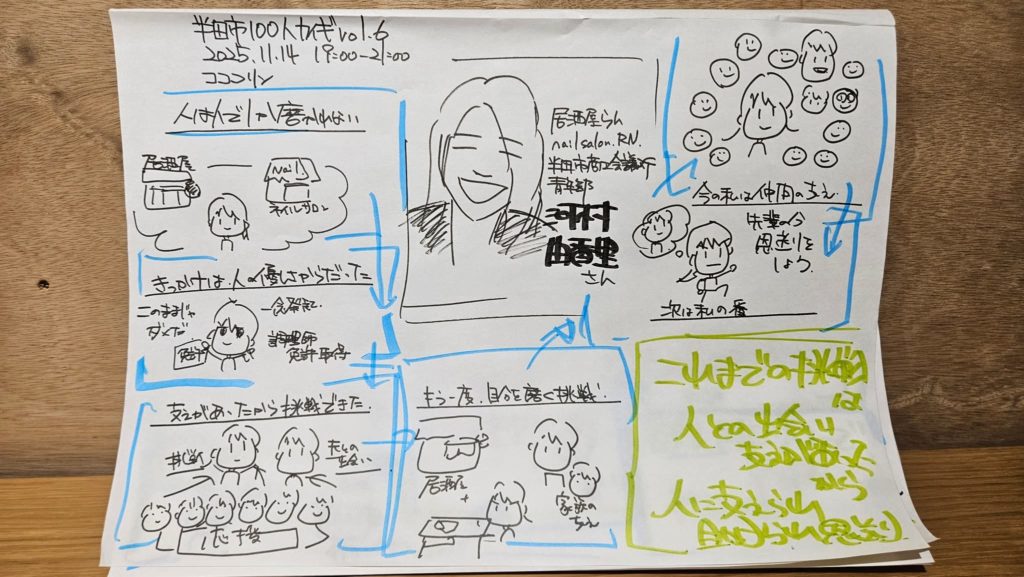 半田市100人カイギ vol.6
2025.11.14 19:00-21:00
ココロリン
人は人でしか磨かれない
居酒屋
Nail
ネイルサロン
きっかけは人の優しさからだった
このままじゃ
ダメだ
免許
一念発起
調理師
免許取得
支えがあったから挑戦できた
挑戦
夫との
出会い
もう一度、自分を磨く挑戦
居酒屋
+
家族の
支え
居酒屋らん
nail salon. RN.
半田市商工会議所
青年部
河村
由香里
さん
今の私は仲間の支え
先輩の分
恩送りを
しよう
次は私の番
これまでの挑戦
は
人との出会い
支えがあった
から
人に支えられ